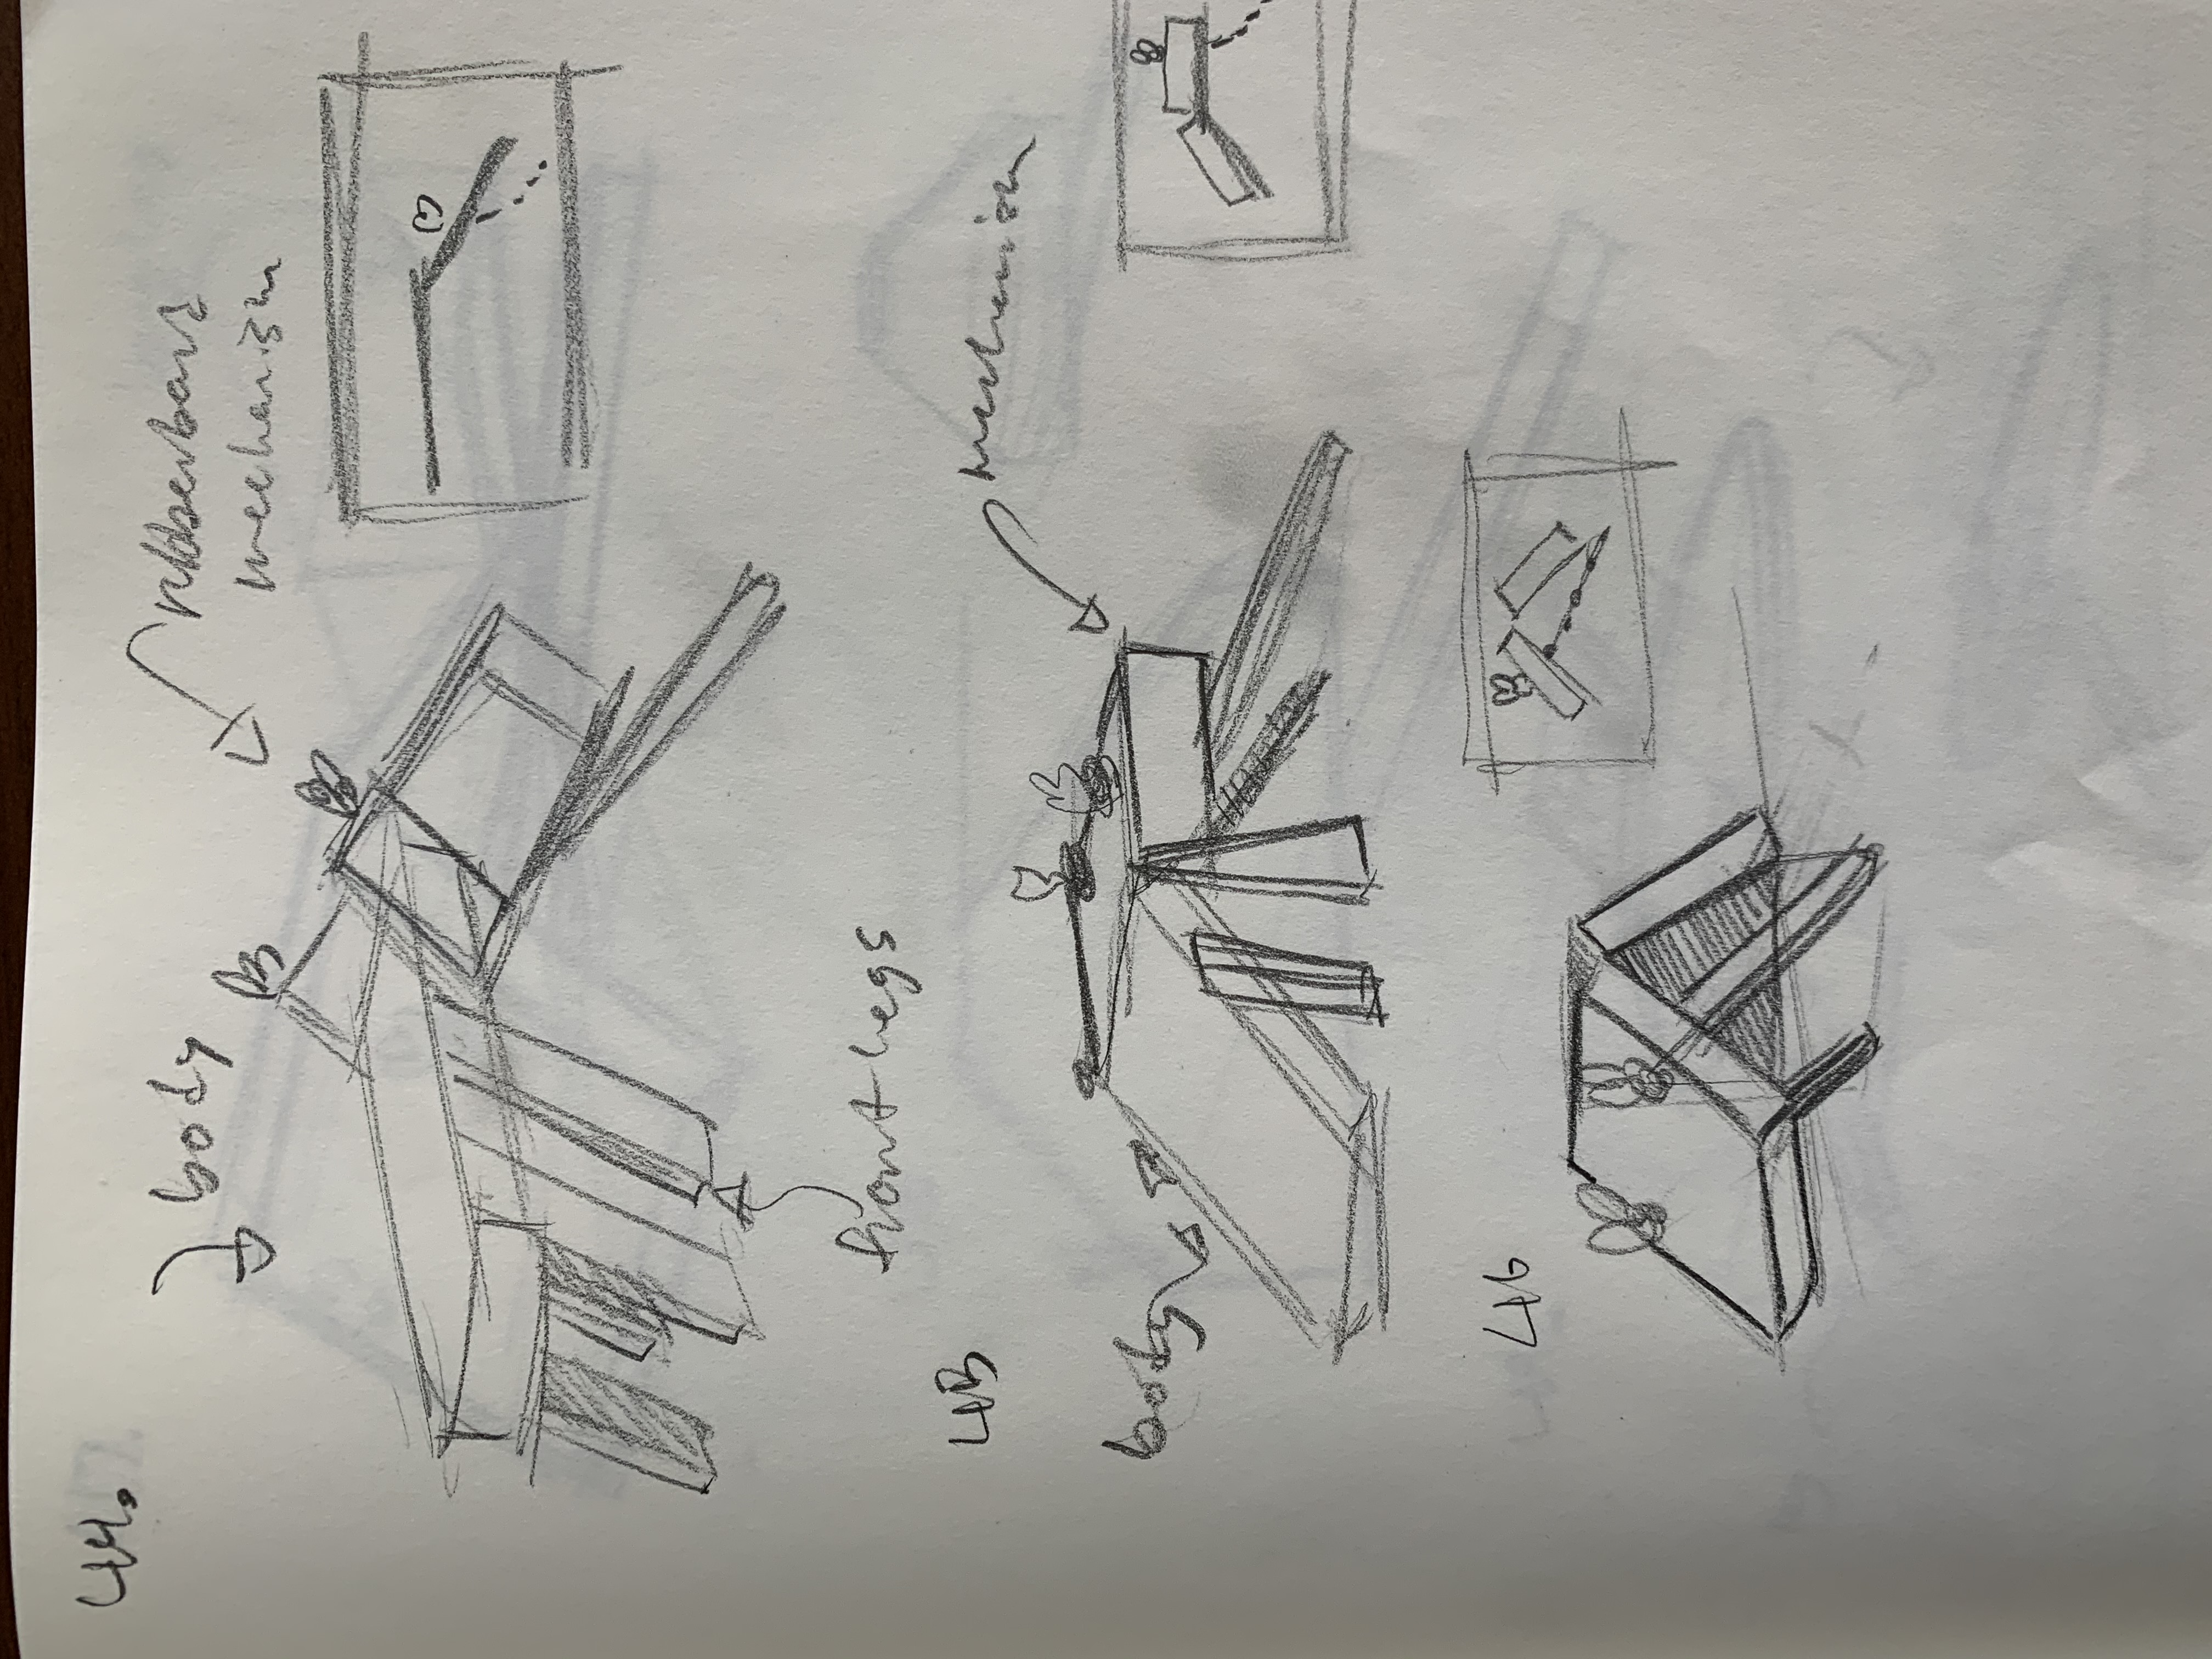 44.
body
rubberband
mechanism
front legs
4B
mechanism
body
46